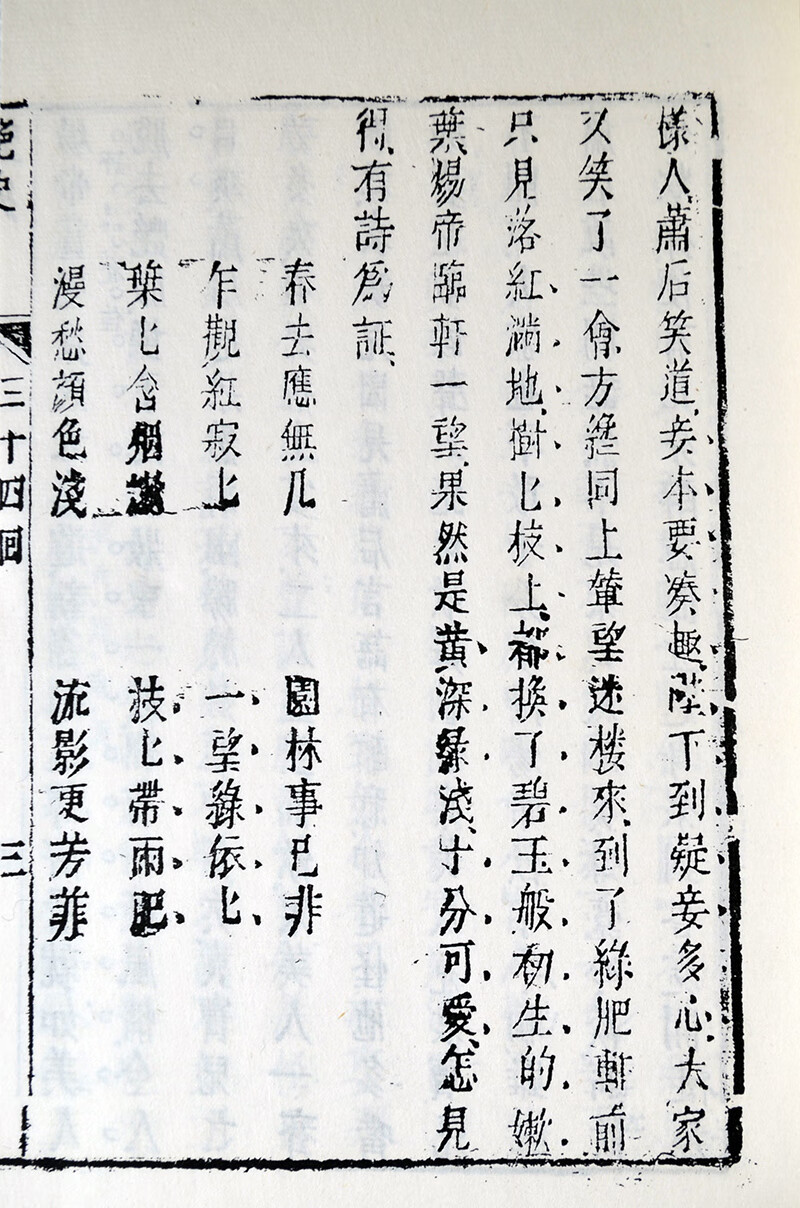 樣人蕭后笑道妾本要凑趣陛下到疑妾多心大家
又笑了一會方纔同上輦望迷樓來到了綠肥軒前
只見落紅滿地樹匕枝上都换了碧玉般初生的嫩
葉煬帝臨軒一望果然是黄深綠淺十分可愛怎見
得有詩爲証
春去應無几 園林事已非
乍觀紅寂匕 一望綠依匕
葉匕含烟 枝匕帶雨肥
漫愁顔色淺 流影更芳菲
艷史 三十四囬 三